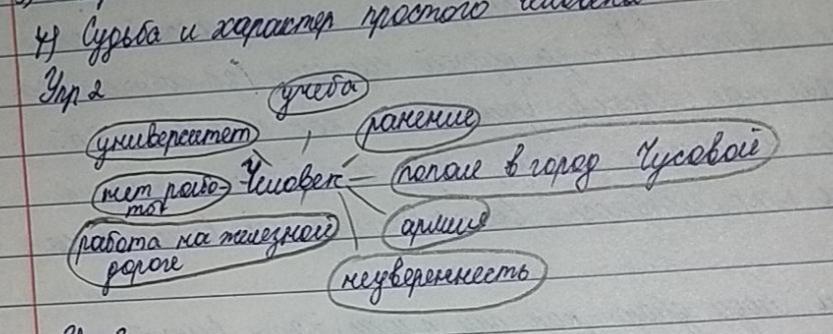 4) Судьба и характер простого человека
Упр 2
учеба
университет
ранение
Человек
попал в город Чусовой
нет рабо-
ты
армия
работа на железной
дороге
неуверенность